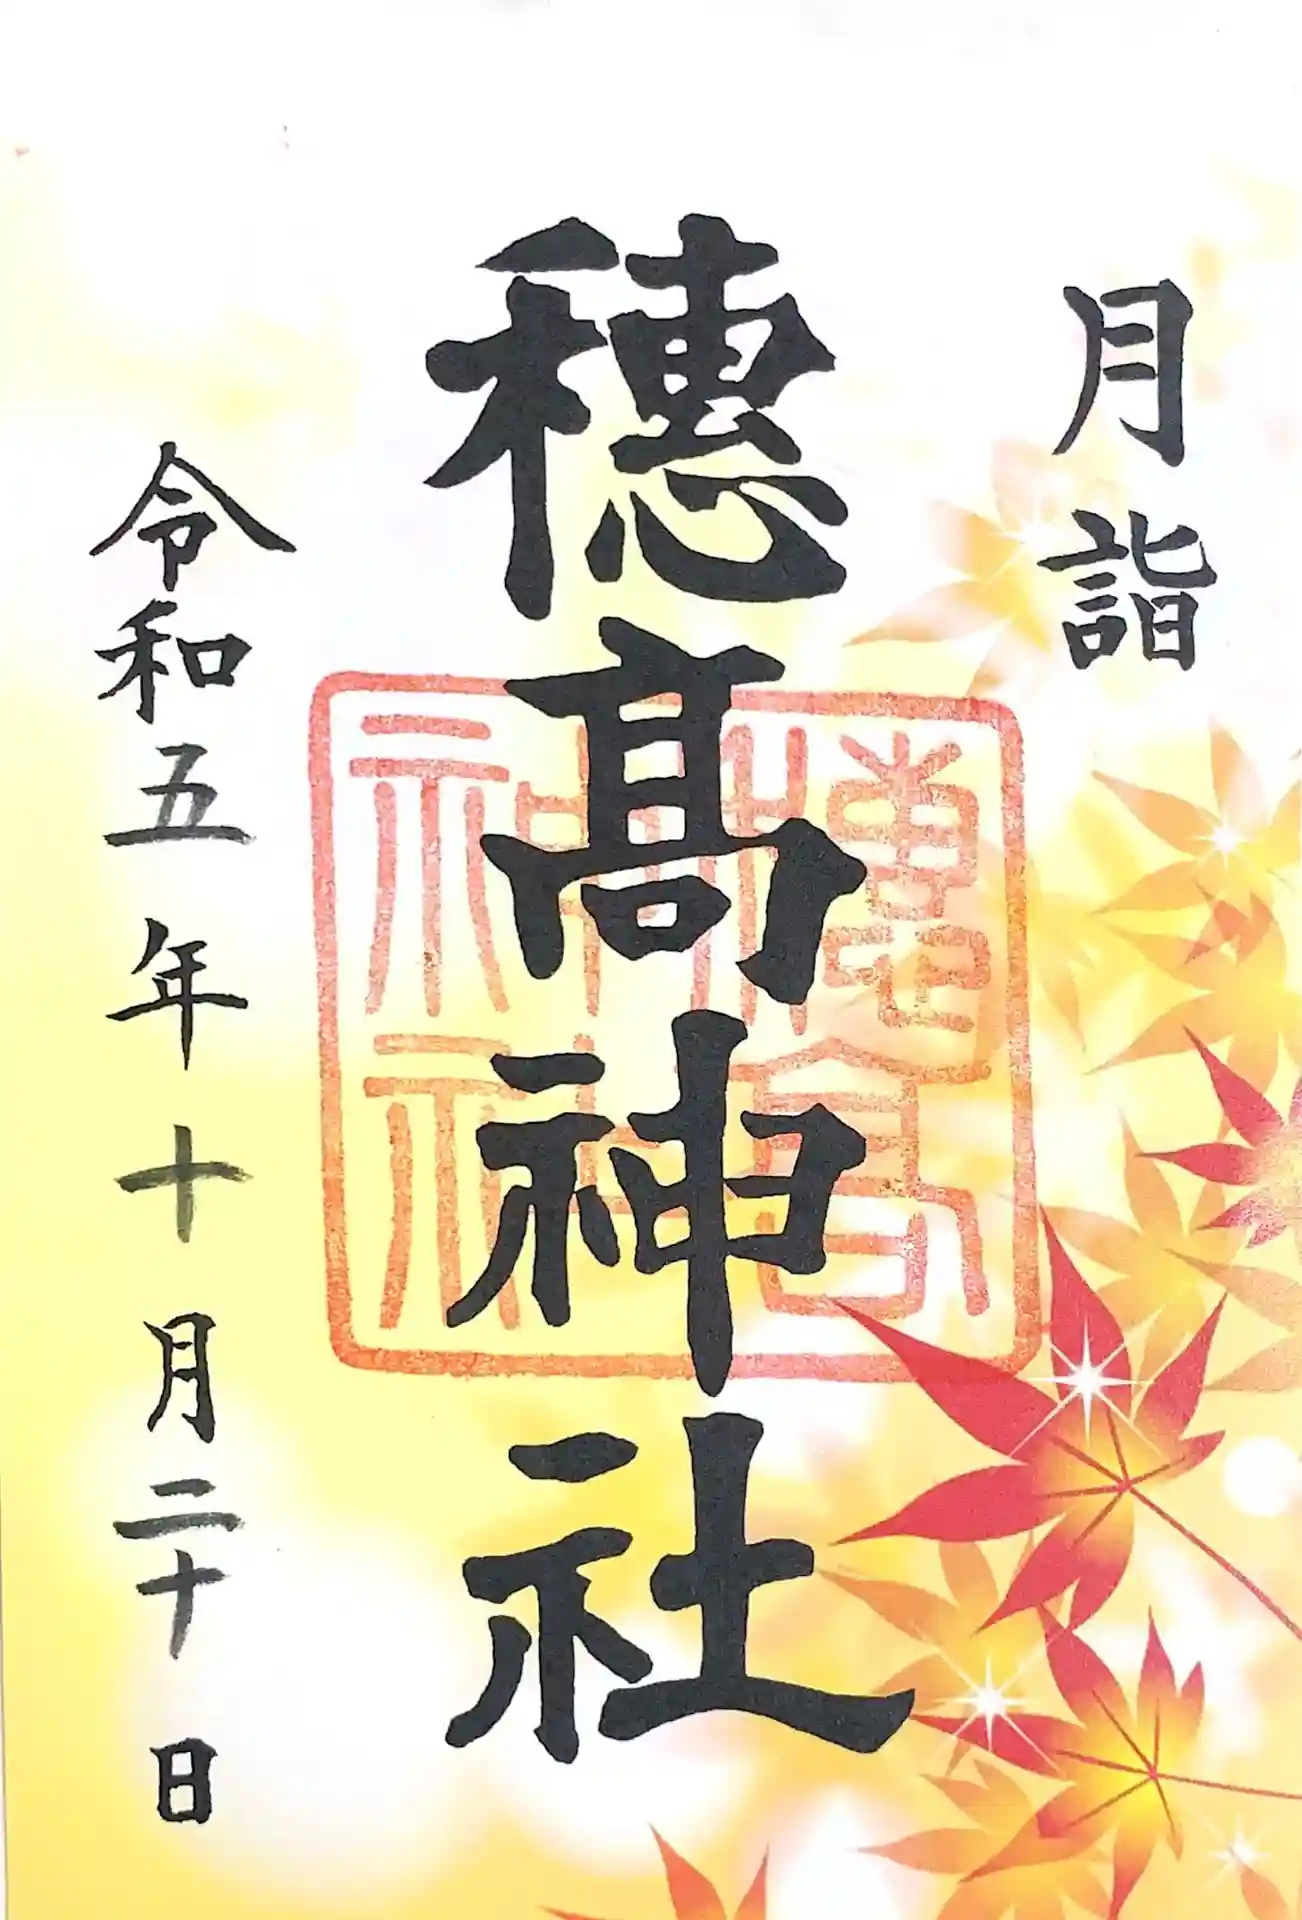 月詣
穂髙神社
穂高神社
令和五年十月二十日